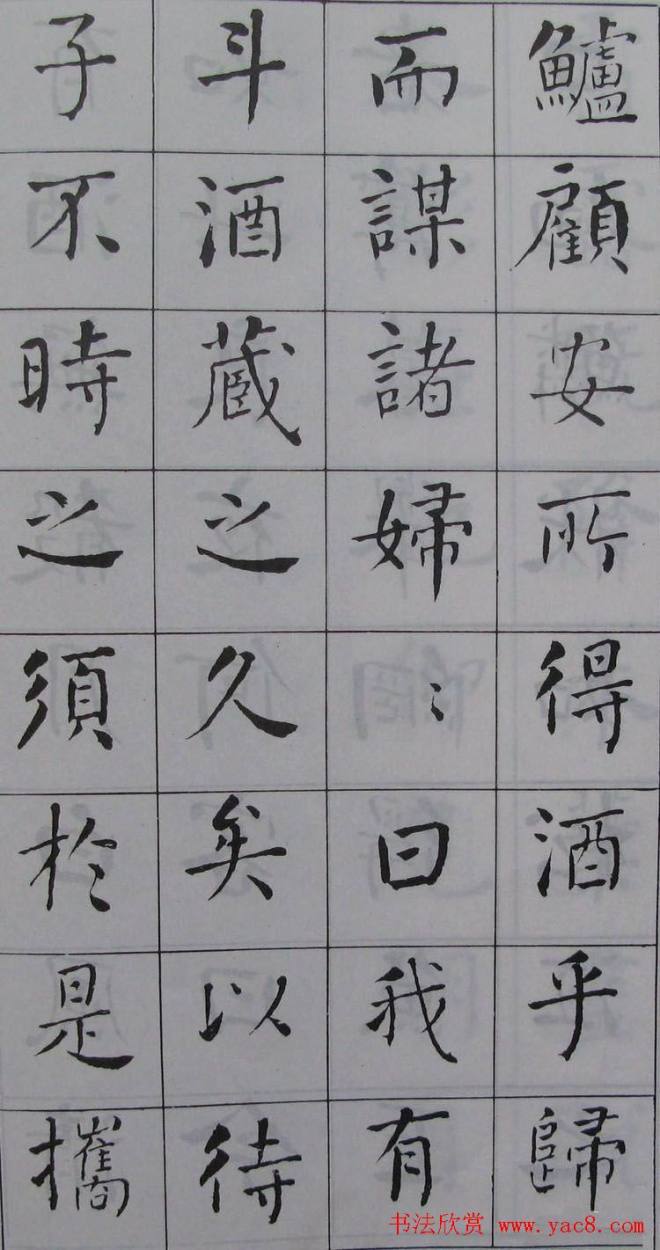 鱸顧安所得酒乎歸
而謀諸婦〻曰我有
斗酒藏之久矣以待
子不時之須於是攜
书法欣赏 www.yac8.com